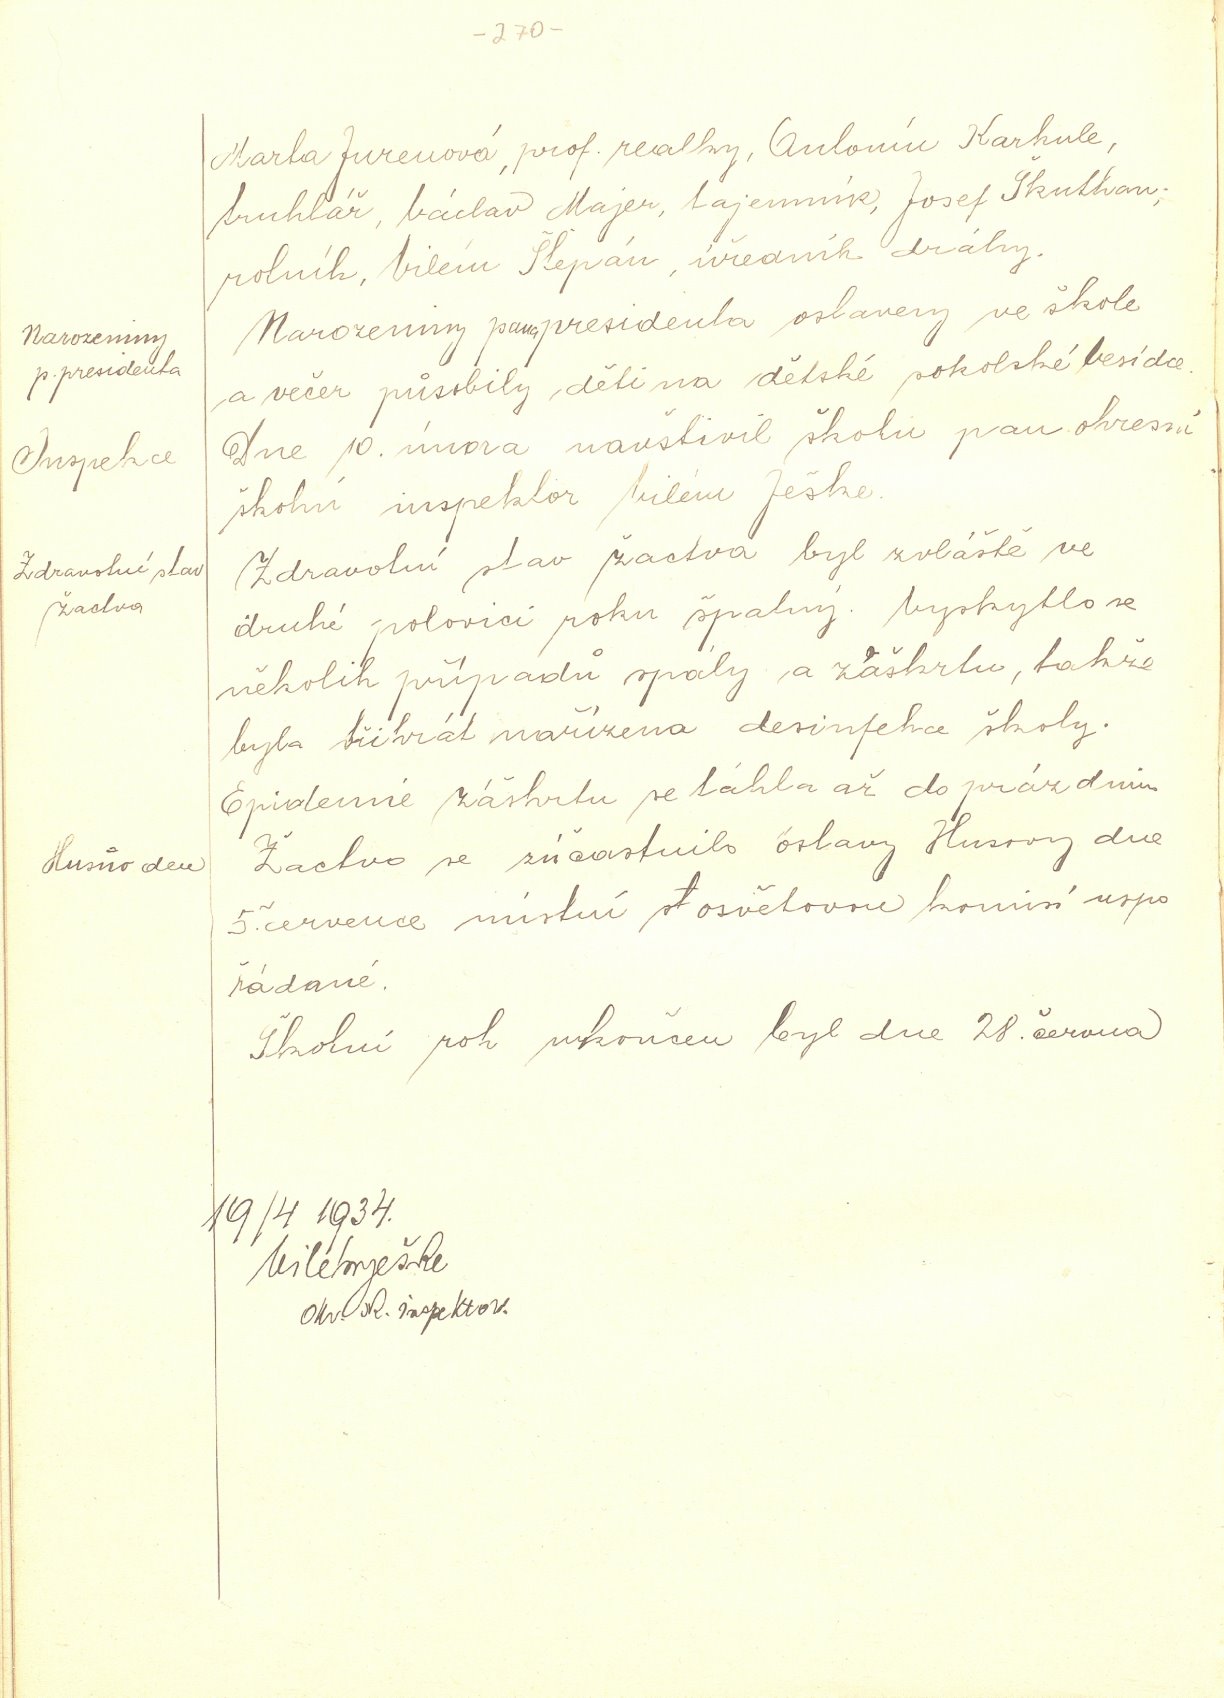 -270-
Marta Jurenová, prof. realky, Antonín Karhule,
truhlář, Václav Majer, tajemník, Josef Škuthan,
rolník, Vilém Štěpán, úředník dráhy.
Narozeniny
p. presidenta
Narozeniny pana presidenta oslaveny ve škole
a večer působily děti na dětské sokolské besídce.
Inspekce
Dne 10. února navštívil školu pan okresní
školní inspektor Vilém Ješke.
Zdravotní stav
žactva
Zdravotní stav žactva byl zvláště ve
druhé polovici roku špatný. Vyskytlo se
několik případů spály a záškrtu, takže
byla třikrát nařízena desinfekce školy.
Epidemie záškrtu se táhla až do prázdnin
Husův den
Žactvo se zúčastnilo oslavy Husovy dne
5. července místní osvětovou komisí uspo
řádané.
Školní rok ukončen byl dne 28. června
19/4 1934.
Vilém Ješke
okr. šk. inspektor.